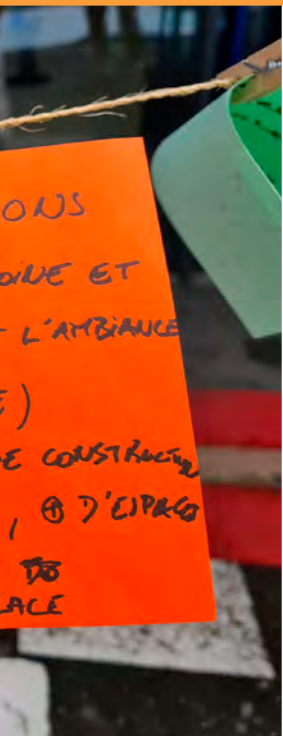 ONS
OINE ET
L'AMBIANCE
E)
E CONSTRUCTION
, ⊕ D'ESPACE
LACE